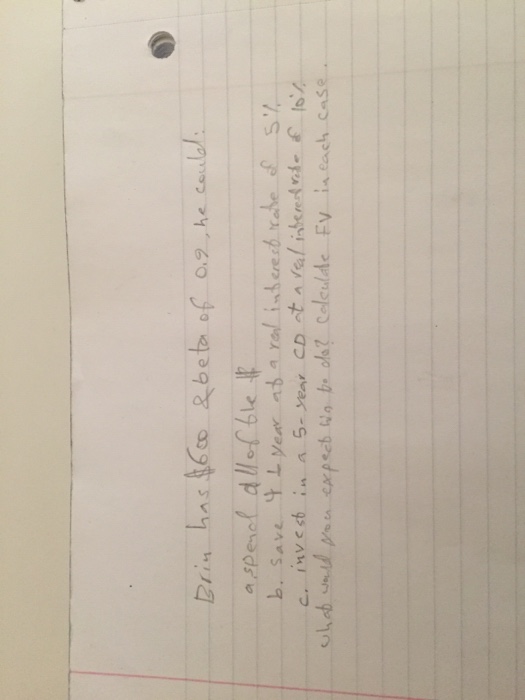 Brin has $600 & beta of 0.9, he could:
a spend all of the $
b. save 4 1 year at a real interest rate of 5%
c. invest in a 5-year CD at a real interest rate of 10%
what would you expect him to do? Calculate FV in each case.